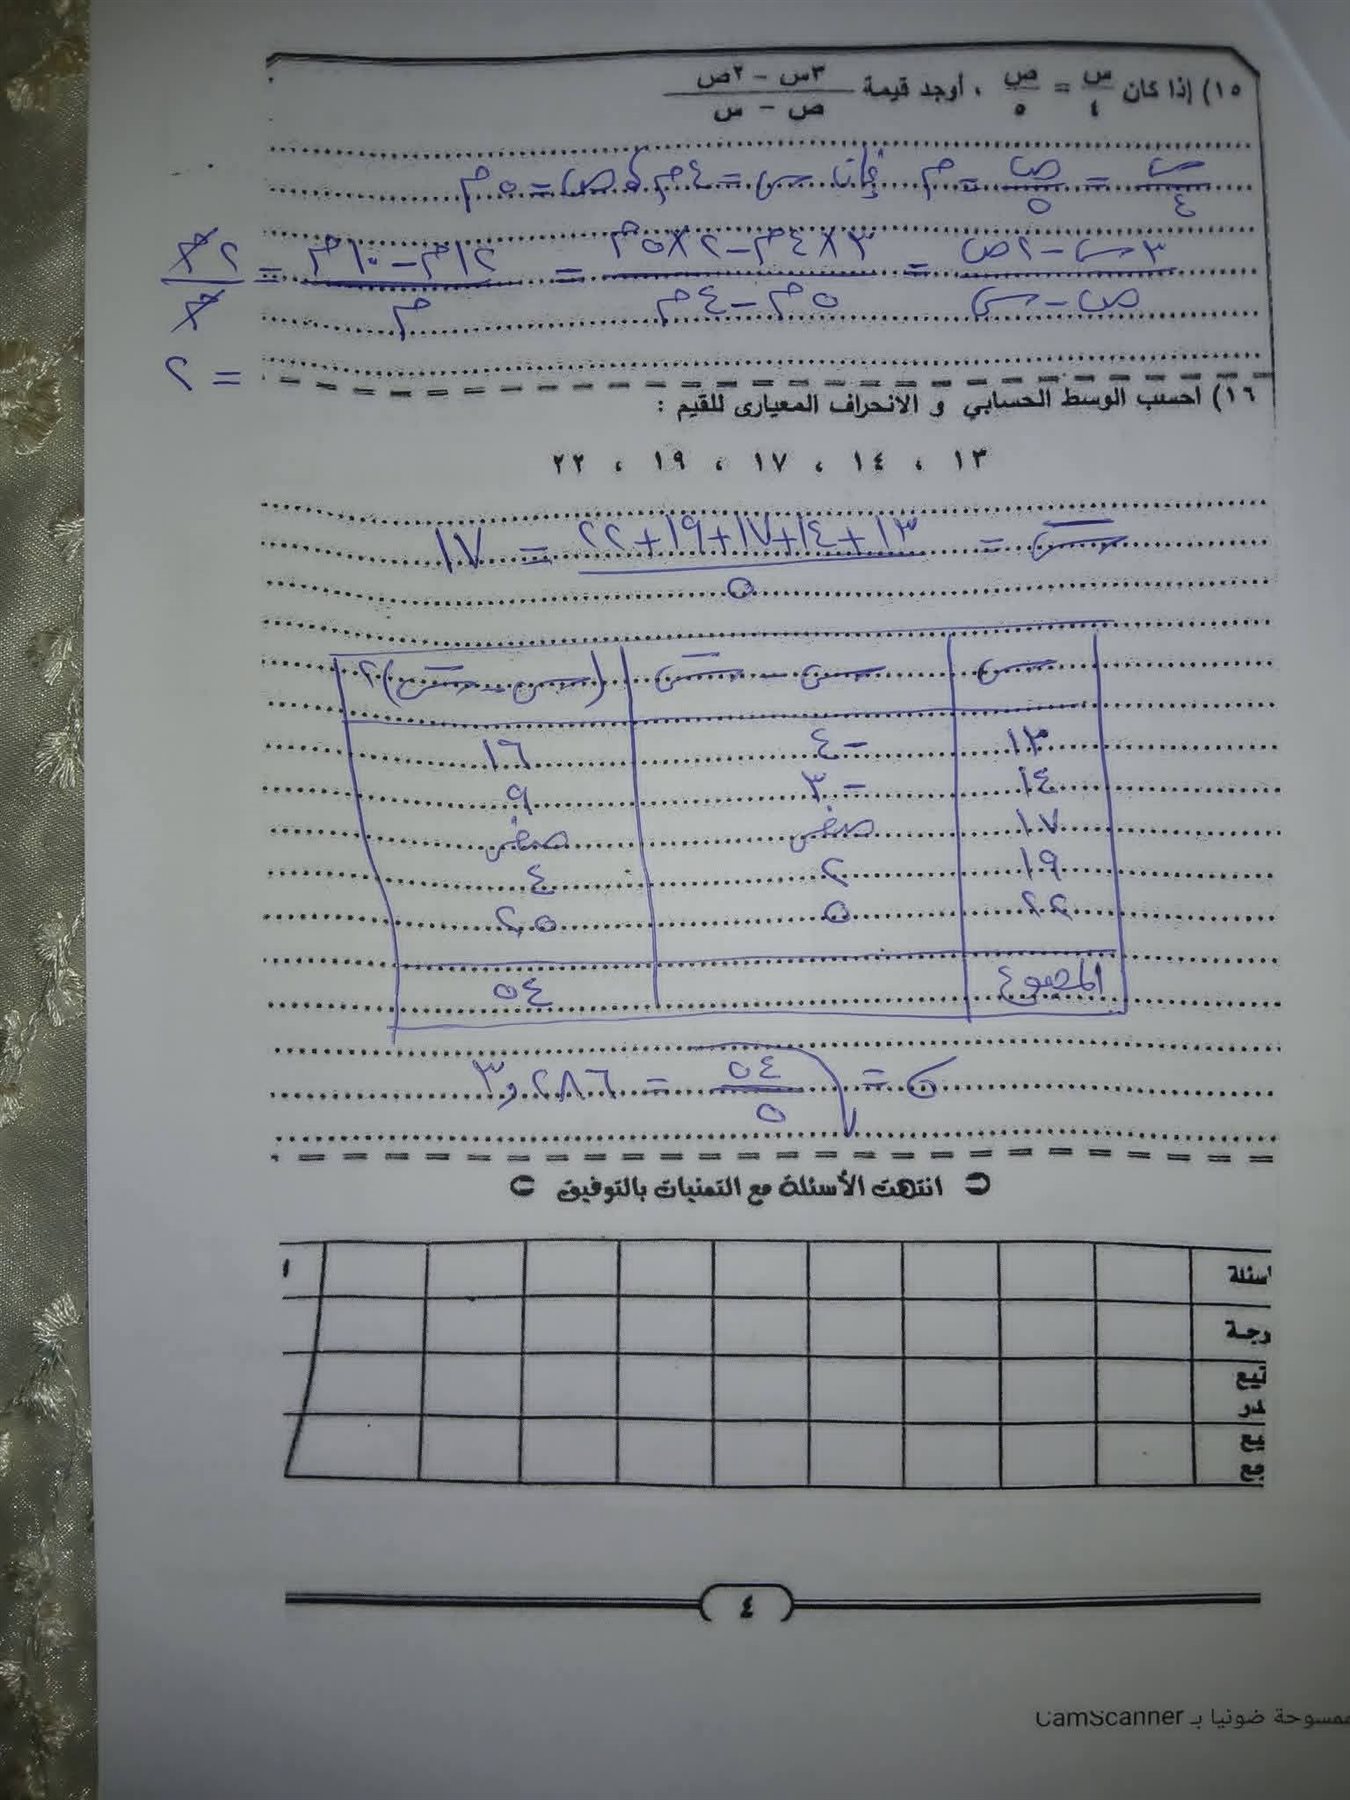 ١٥) إذا كان س/٤ = ص/٥ ، أوجد قيمة (٣س - ٢ص)/(ص - س)
س/٤ = ص/٥ = م فإن س = ٤م ، ص = ٥م
(٣س - ٢ص)/(ص - س) = (٣×٤م - ٢×٥م)/(٥م - ٤م) = (١٢م - ١٠م)/م = ٢م/م
= ٢
١٦) احسب الوسط الحسابي و الانحراف المعيارى للقيم :
١٣ ، ١٤ ، ١٧ ، ١٩ ، ٢٢
س̅ = (١٣+١٤+١٧+١٩+٢٢)/٥ = ١٧
س س - س̅ (س - س̅)٢
١٣ -٤ ١٦
١٤ -٣ ٩
١٧ صفر صفر
١٩ ٢ ٤
٢٢ ٥ ٢٥
المجموع ٥٤
σ = √(٥٤/٥) = ٣,٢٨٦
انتهت الأسئلة مع التمنيات بالتوفيق
اسئلة ١
رجة
٤
ممسوحة ضوئيا بـ CamScanner